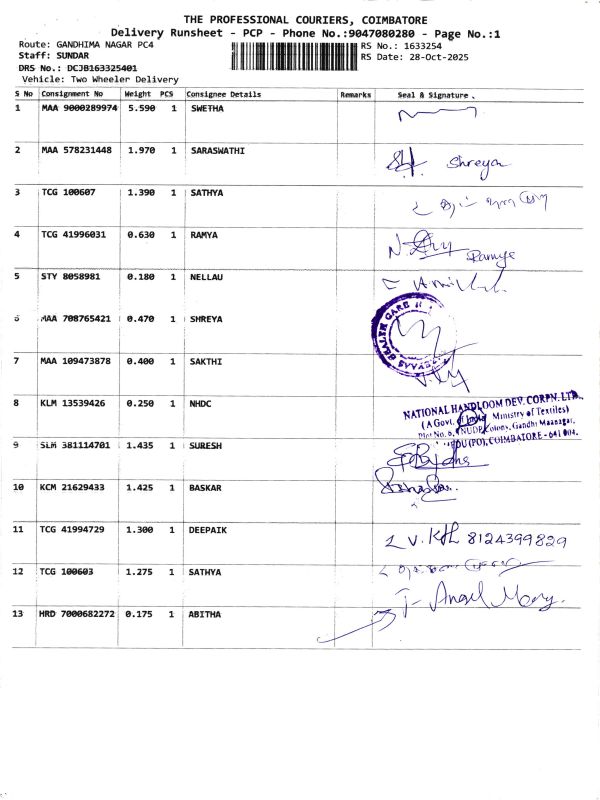 THE PROFESSIONAL COURIERS, COIMBATORE
Delivery Runsheet - PCP - Phone No.:9047080280 - Page No.:1
Route: GANDHIMA NAGAR PC4 RS No.: 1633254
Staff: SUNDAR RS Date: 28-Oct-2025
DRS No.: DCJB163325401
Vehicle: Two Wheeler Delivery
S No Consignment No Weight PCS Consignee Details Remarks Seal & Signature
1 MAA 9000289974 5.590 1 SWETHA
2 MAA 578231448 1.970 1 SARASWATHI Shreya
3 TCG 100607 1.390 1 SATHYA
4 TCG 41996031 0.630 1 RAMYA Ramya
5 STY 8058981 0.180 1 NELLAU
6 MAA 708765421 0.470 1 SHREYA HEALTH CARE
7 MAA 109473878 0.400 1 SAKTHI
8 KLM 13539426 0.250 1 NHDC NATIONAL HANDLOOM DEV. CORPN. LTD.
(A Govt. of India Ministry of Textiles)
Plot No. 6, NUDP Colony, Gandhi Maanagar,
(PO), COIMBATORE - 641 004.
9 SLM 381114701 1.435 1 SURESH
10 KCM 21629433 1.425 1 BASKAR
11 TCG 41994729 1.300 1 DEEPAIK 8124399829
12 TCG 100603 1.275 1 SATHYA
13 HRD 7000682272 0.175 1 ABITHA J- Angel Mary.